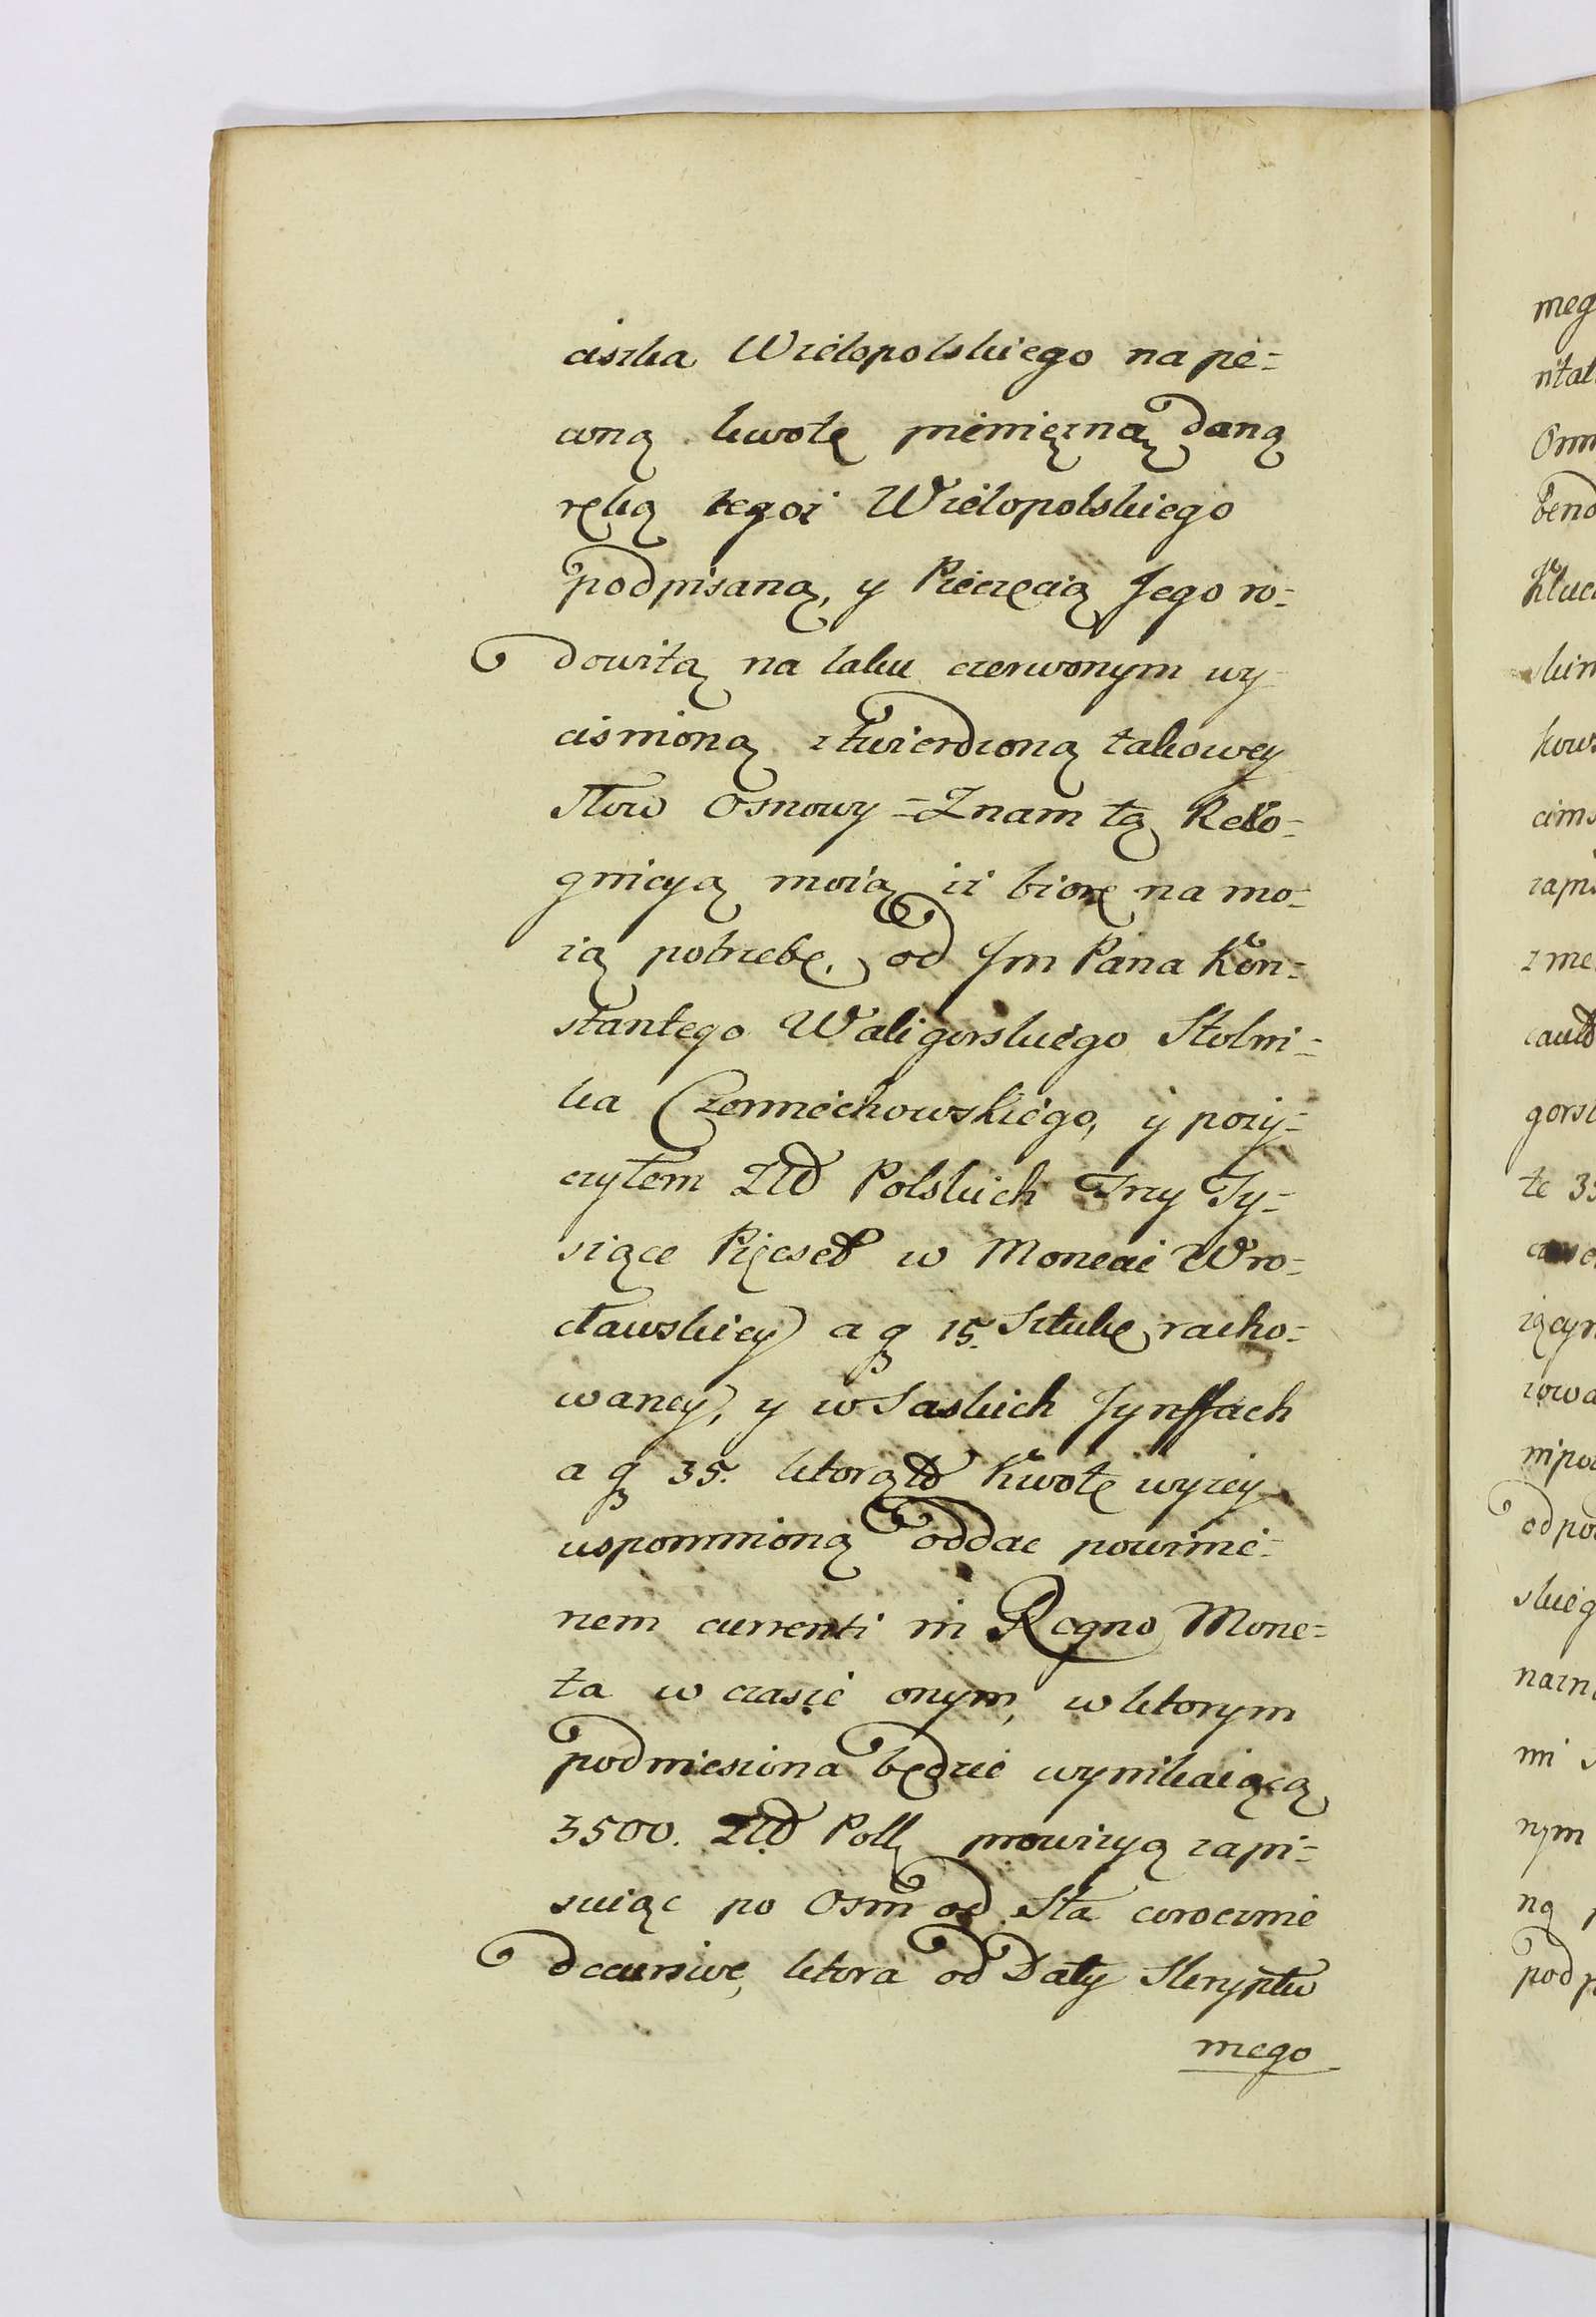 ciszka Wielopolskiego na pe=
wną kwotę pieniężną daną
ręką tegoż Wielopolskiego
podpisaną, y Pieczęcią Jego ro=
dowitą na laku czerwonym wy
cisnioną ztwierdzoną takowey
Słow Osnowy = Znam tą Reko=
gnicyą moią iż biorę na mo=
ią potrzebę, od Jm Pana Kon=
stantego Waligorskiego Stolni=
ka Czerniechowskiego, y poży=
czyłem Złł Polskich Trzy Ty=
siące Pięcset w Moneci Wro=
cławskiey a gr 15. Sztukę racho=
waney, y w Saskich Tynffach
a gr 35. ktorążto Kwotę wyżey
wspomnioną oddac powinie=
nem currenti in Regno Mone=
ta w czasie onym, w ktorym
podniesiona będzie wynikaiącą
3500. Złł Poll prowizyą zapi=
suiąc po Osm od Sta corocznie
decursive, ktora od Daty Skryptu
mego
meg
nital
Omn
bend
Kluc
skim
kows
cims
zapi
z me
gors
te 35
iącyn
zowa
nipo
odpo
skieg
nazn
ni s
nym
ną p
pod p